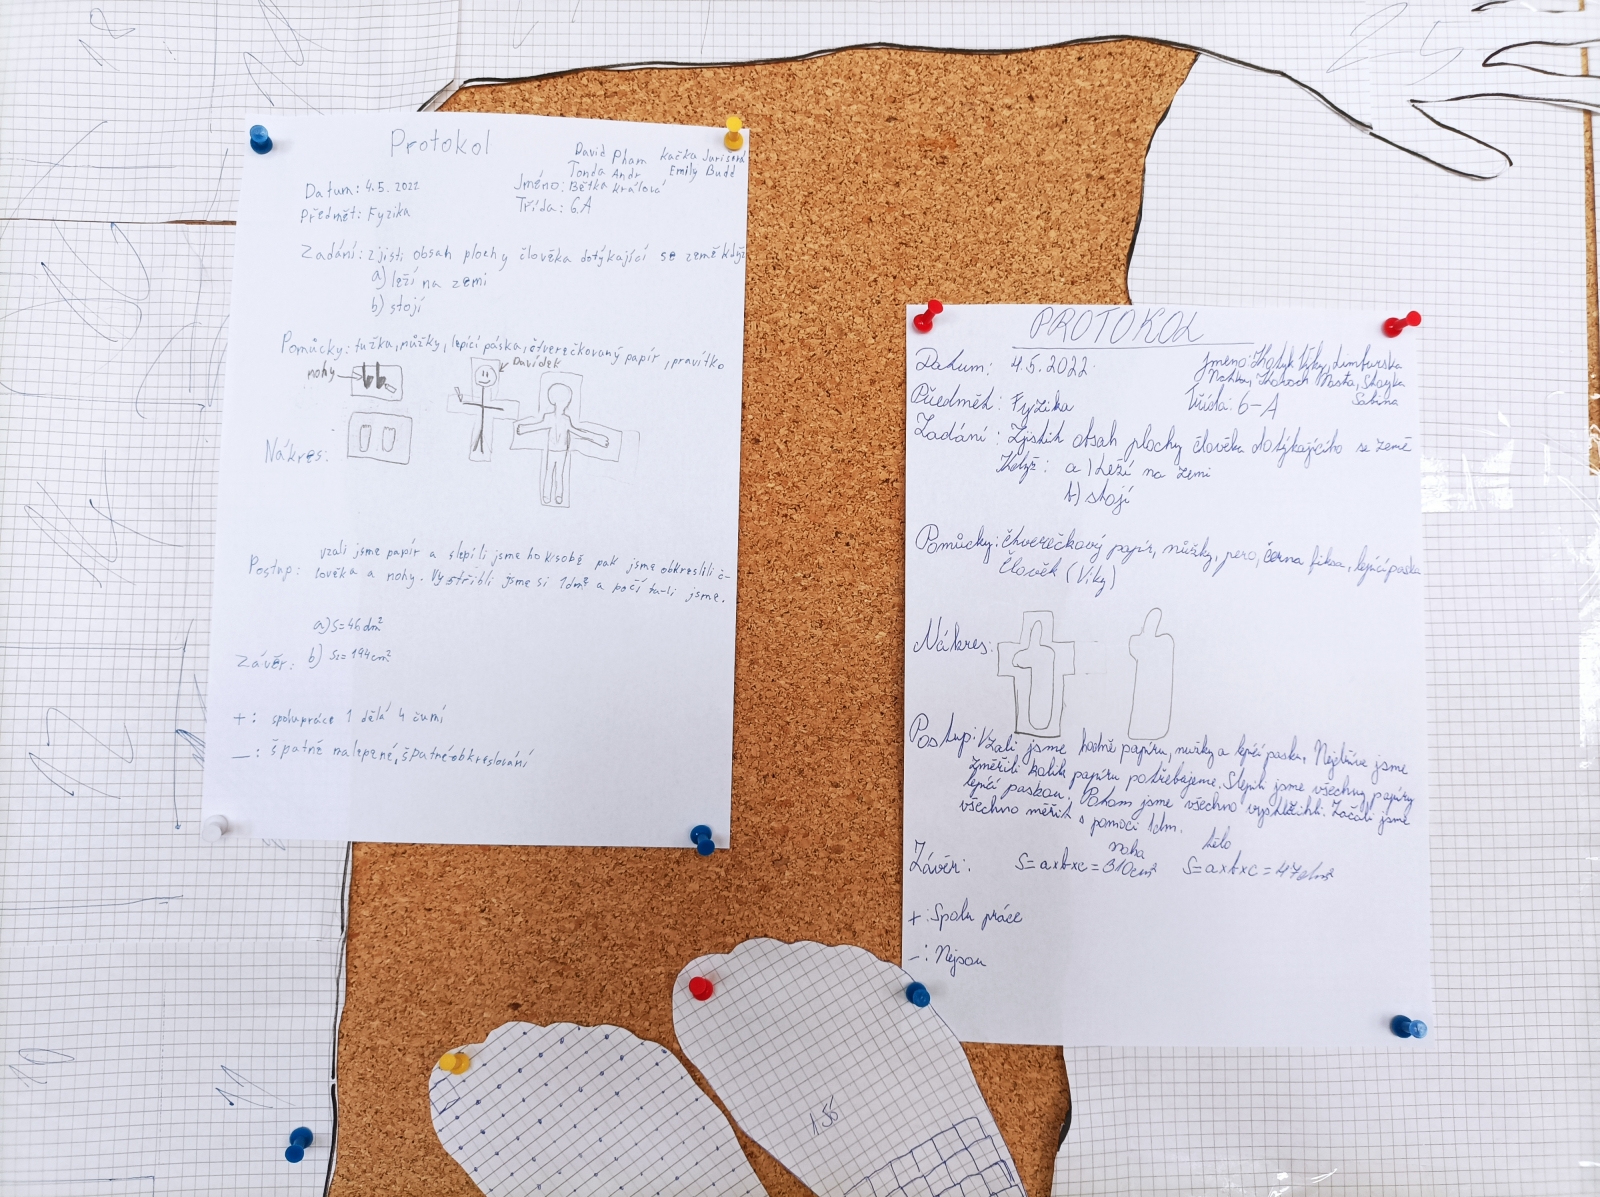 18
25
Protokol
David Pham Kačka Jurisová
Tonda Andr Emily Budd
Datum: 4.5. 2022
Jméno: Bětka Králová
Předmět: Fyzika
Třída: 6.A
Zadání: zjisti obsah plochy člověka dotýkající se země když
a) leží na zemi
b) stojí
Pomůcky: tužka, nůžky, lepící páska, čtverečkovaný papír, pravítko
nohy
Davídek
Nákres:
vzali jsme papír a slepili jsme ho k sobě pak jsme obkreslili č-
Postup: lověka a nohy. Vystřihli jsme si 1dm² a počí ta-li jsme.
a) S=46 dm²
Závěr: b) S₂=194cm²
+: spolupráce 1 dělá 4 čumí
—: špatné nalepené, špatné obkreslování
PROTOKOL
Datum: 4.5.2022
Jméno: Viky,
Předmět: Fyzika
Třída: 6-A
Sabina
Zadání: Zjistit obsah plochy člověka dotýkajícího se země
Když: a) Leží na zemi
b) stojí
Pomůcky: čtverečkový papír, nůžky, pero, černa fixa, lepící paska
Člověk (Viky)
Nákres:
Postup: Vzali jsme hodně papíru, nužky a lepící pasku. Nejdříve jsme
změřili kolik papíru potřebujeme. Slepili jsme všechny papíry
lepící paskou. Potom jsme všechno vystřihli. Začali jsme
všechno měřit s pomoci 1dm.
noha tělo
Závěr: S=a×b×c=310cm² S=a×b×c=47dm²
+: Spolu práce
-: Nejsou
12
10
11
1.55